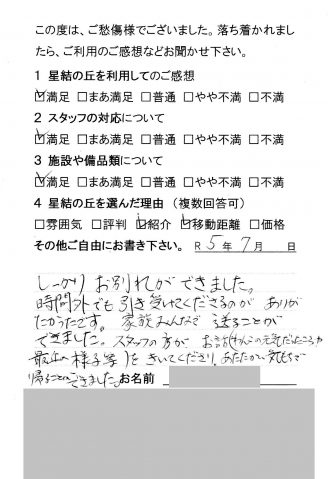 この度は、ご愁傷様でございました。落ち着かれまし
たら、ご利用のご感想などお聞かせ下さい。
1 星結の丘を利用してのご感想
☑満足 □まあ満足 □普通 □やや不満 □不満
2 スタッフの対応について
☑満足 □まあ満足 □普通 □やや不満 □不満
3 施設や備品類について
☑満足 □まあ満足 □普通 □やや不満 □不満
4 星結の丘を選んだ理由 (複数回答可)
□雰囲気 □評判 ☑紹介 ☑移動距離 □価格
その他ご自由にお書き下さい。 R 5年 7月 日
しっかりお別れができました。
時間外でも引き気してくださるのが ありが
たかったです。 家族みんなで 送ることが
できました。スタッフの方が お話(わんこの元気だったころや
最近の様子等)をきいてくださり、あたたかい気もちで
帰ることができました。お名前